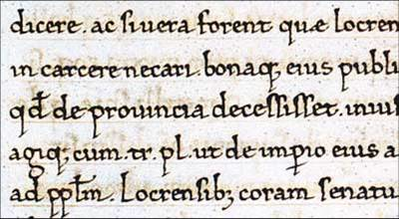 dicere. ac si uera forent quæ locren
in carcere necari. bonaq; eius publi
qđ de prouincia decessisset. iniuſ
agiq; cum. tr. pl. ut de imꝑio eius a
ad pplm̄. Locrensib; coram senatu